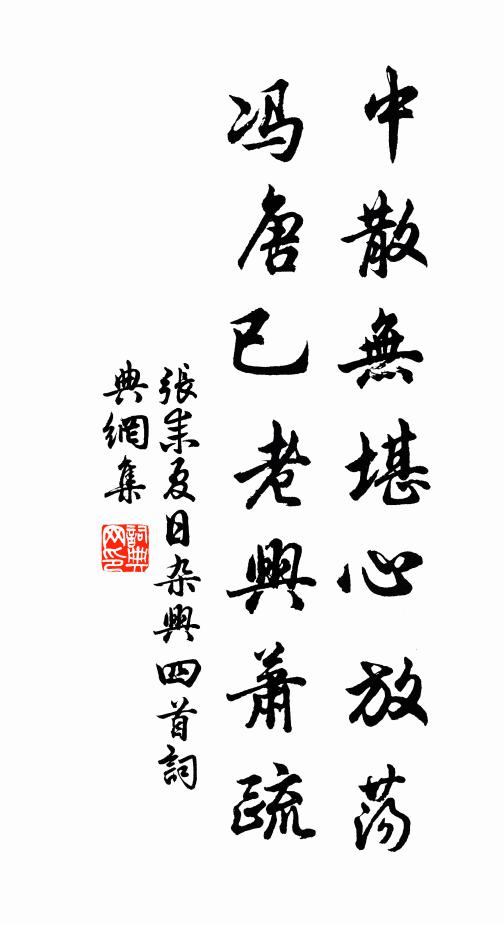 中散無堪心放蕩
冯唐已老興蕭疏
張耒夏日杂興四首詞
典網集
詞典
网印